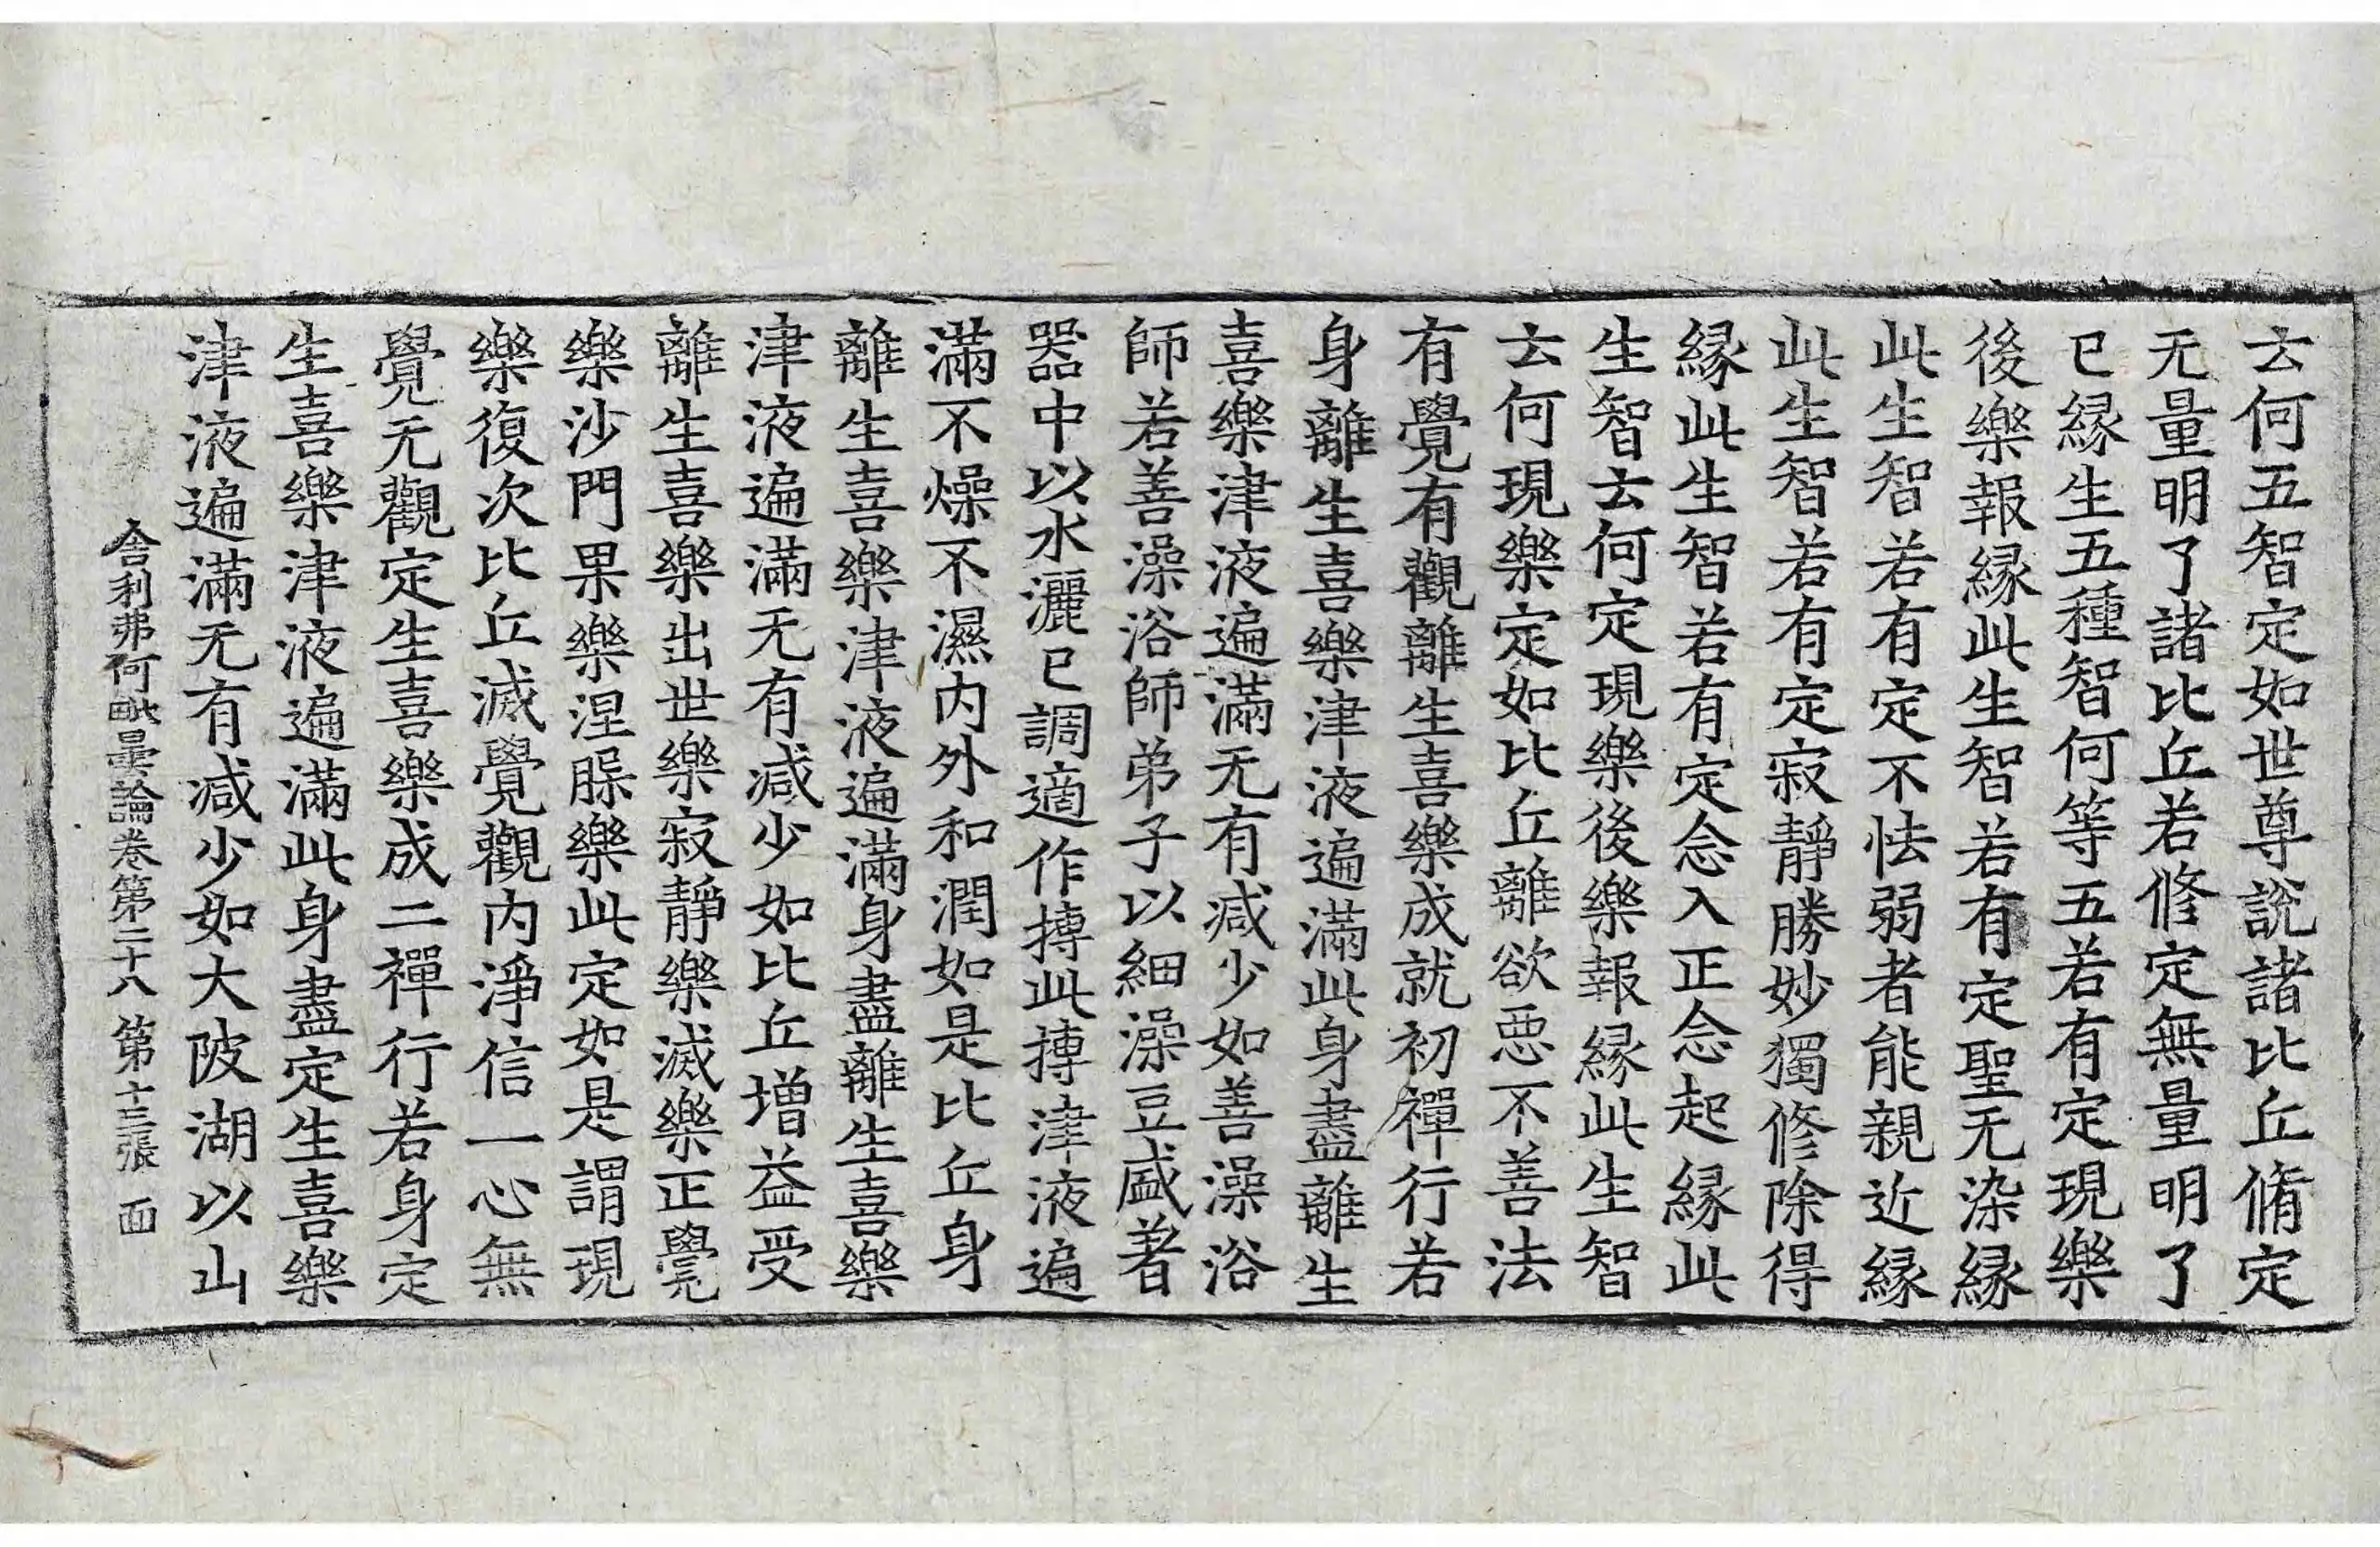 云何五智定如世尊說諸比丘脩定
无量明了諸比丘若修定無量明了
已緣生五種智何等五若有定現樂
後樂報緣此生智若有定聖无染緣
此生智若有定不怯弱者能親近緣
此生智若有定寂靜勝妙獨修除得
緣此生智若有定念入正念起緣此
生智云何定現樂後樂報緣此生智
云何現樂定如比丘離欲惡不善法
有覺有觀離生喜樂成就初禪行若
身離生喜樂津液遍滿此身盡離生
喜樂津液遍滿无有減少如善澡浴
師若善澡浴師弟子以細澡豆盛著
器中以水灑已調適作摶此摶津液遍
滿不燥不濕內外和潤如是比丘身
離生喜樂津液遍滿身盡離生喜樂
津液遍滿无有減少如比丘增益受
離生喜樂出世樂寂靜樂滅樂正覺
樂沙門果樂涅槃樂此定如是謂現
樂復次比丘滅覺觀內淨信一心無
覺无觀定生喜樂成二禪行若身定
生喜樂津液遍滿此身盡定生喜樂
津液遍滿无有減少如大陂湖以山
舍利弗阿毗曇論卷第二十八 第十三張 面